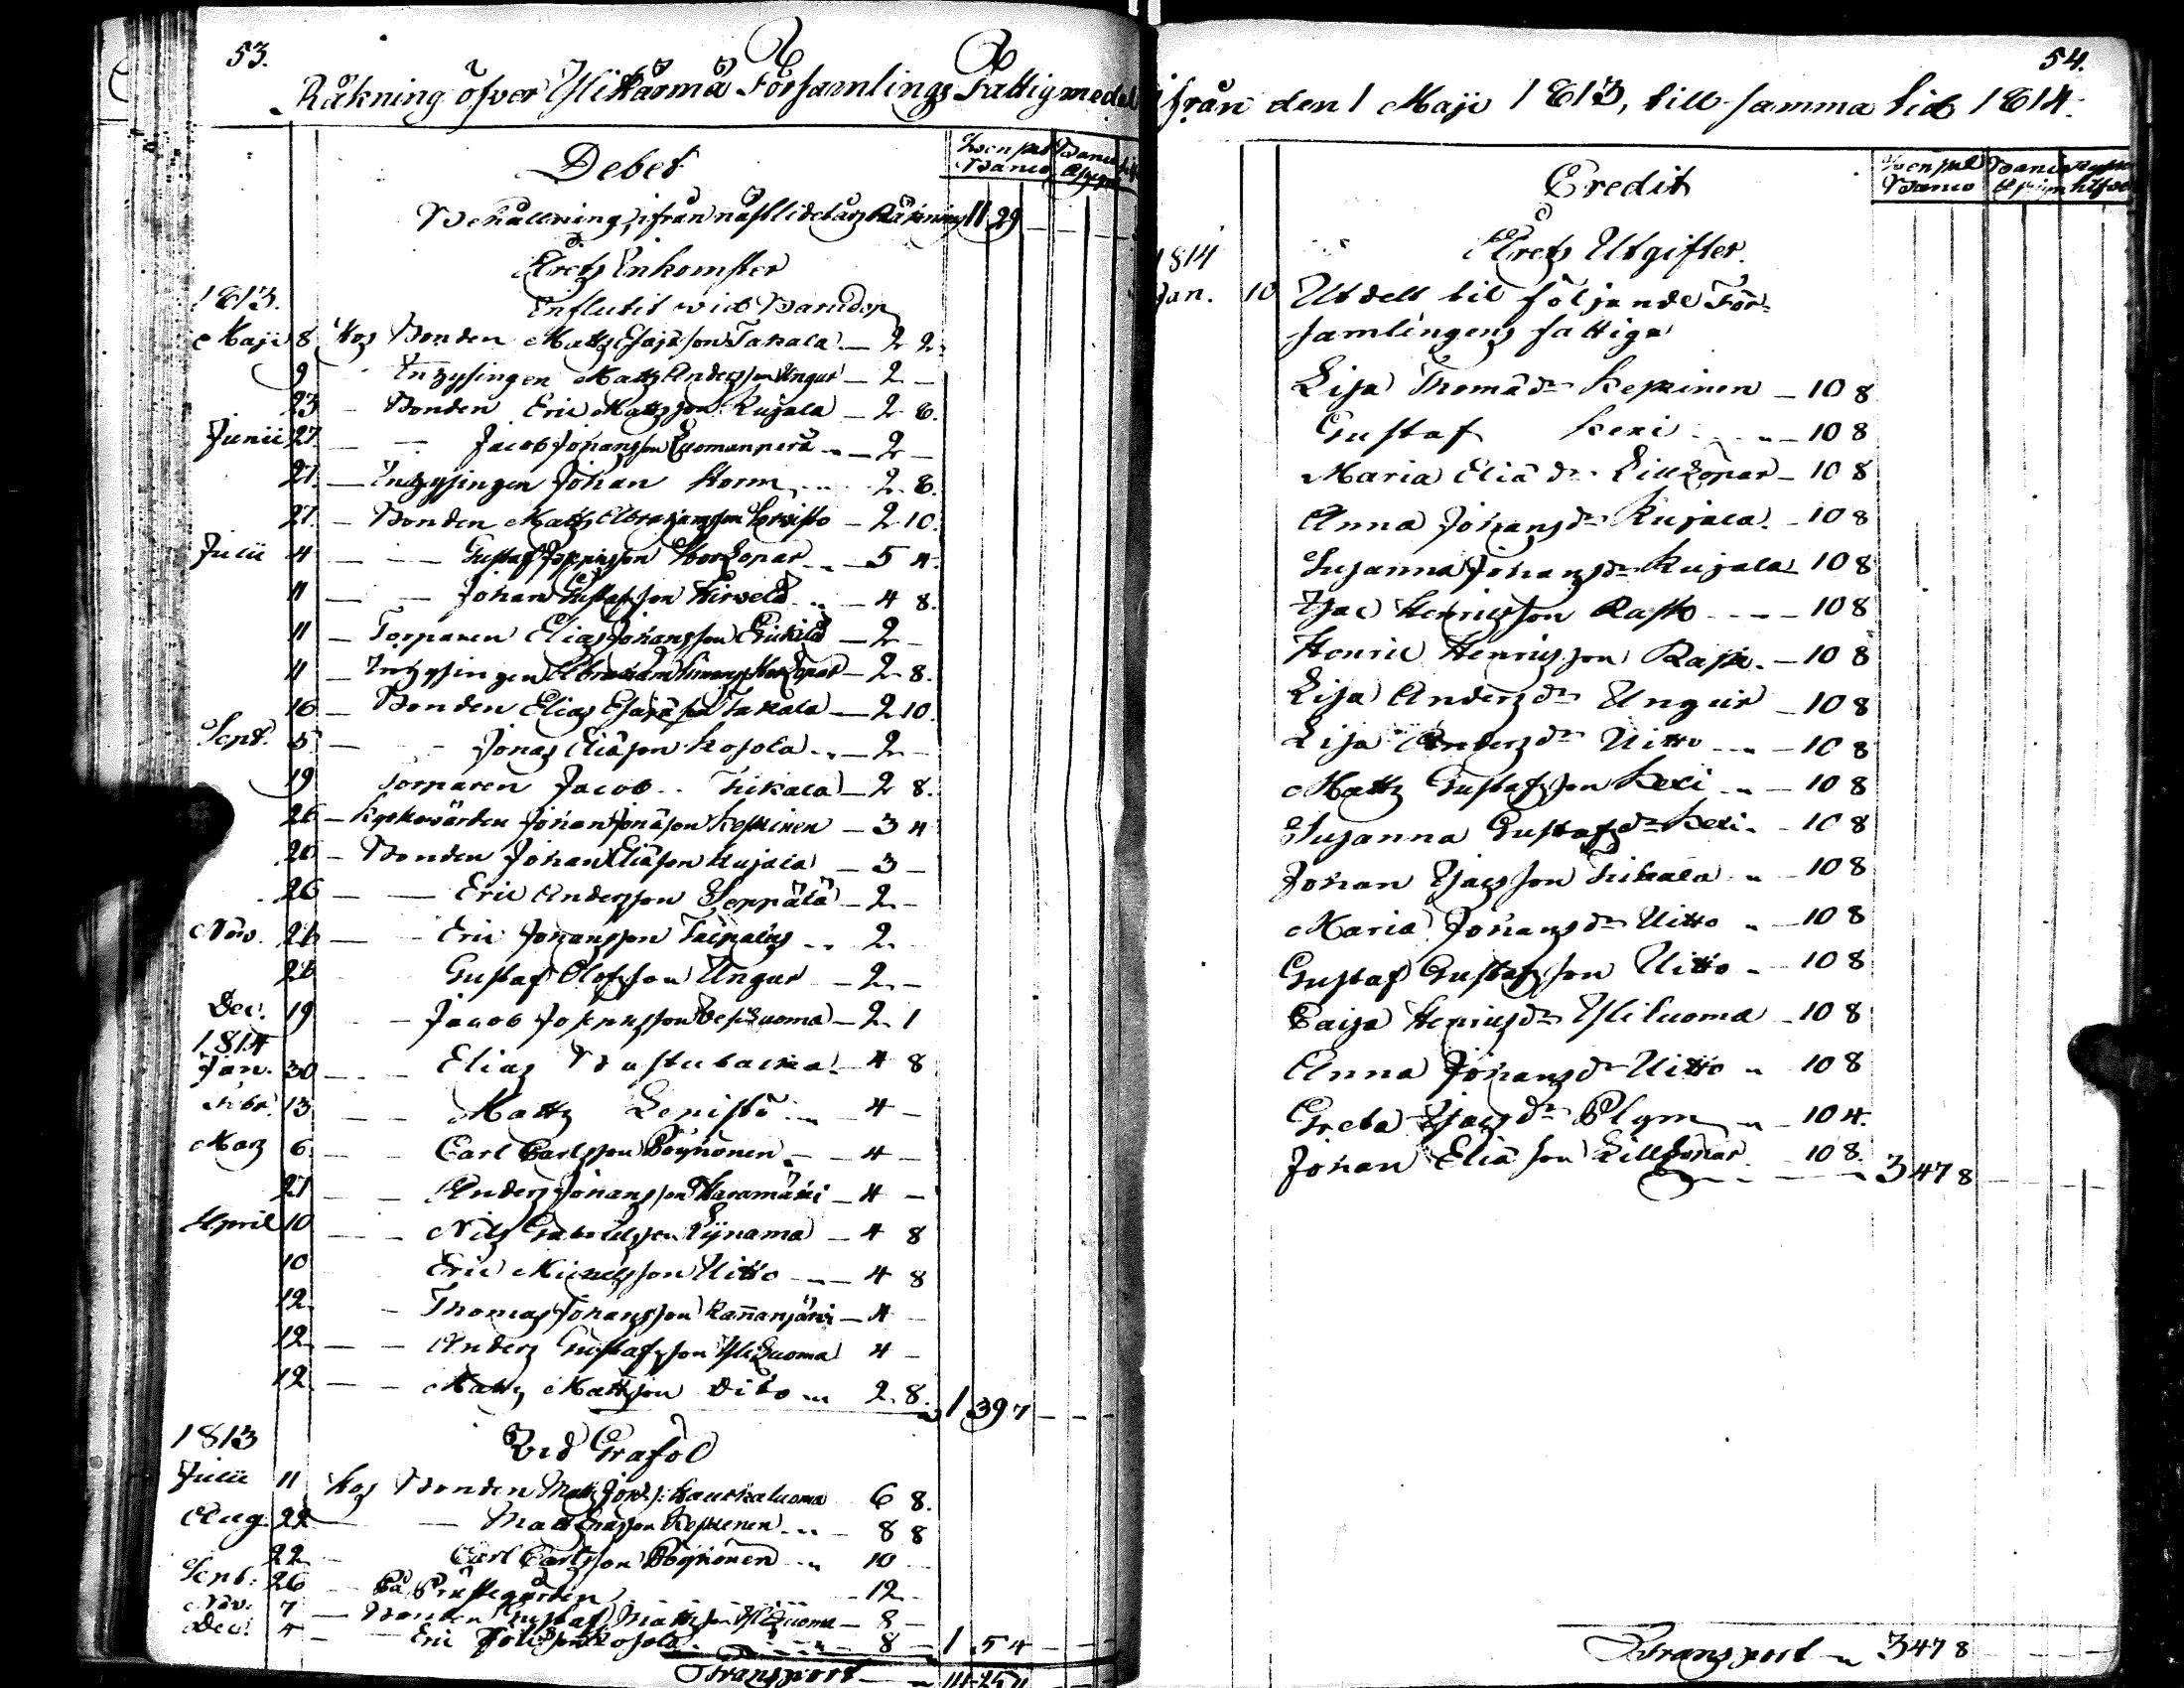 53.
Räkning öfver Ylikärmä Församlings Fattigmedel
Debet
Svenskt Banco
Banco
Behållning, ifrån nästlidet års Räkning 11 29 — —
Årets Inkomster
1813.
Influtit vid Barndop
Maji 8 Hos Bonden Matts Esajason Takala — 2 2.
9 Inhysingen Matts Andersson Ungur — 2 —
23 — Bonden Eric Mattsson Kujala — 2 8.
Junii 27. — — Jacob Johansson Luomanperä — 2 —
27. — Inhysingen Johan Storm — 2. 8.
27. — Bonden Matts Abrahamsson — 2 10.
Julii 4 — — Gustaf Josephsson — 5 4.
11 — — Johan Gustafsson Hirvelä — 4 8.
11 — Torparen Elias Johansson — 2 —
11 — Inhysingen Abraham — 2 8.
16 — Bonden Elias Esajason Takala — 2 10.
Sept. 5 — — Jonas Eliason Kosola — 2 —
19 Torparen Jacob Tikala — 2 8.
26 — Kyrkovärden Johan Jonason Keskinen — 3 4
26 — Bonden Johan Eliason Kujala — 3 —
26 — — Eric Andersson Seppälä — 2 —
Nov. 26 — — Eric Johansson Taipalus — 2.
26 Gustaf Olofsson Ungur — 2 —
Dec. 19 — Jacob Josephsson Vesiluoma — 2. 1
1814
Jan. 30 — — Elias — 4 8
Febr. 13 — — Matts Lepistö — 4 —
Mars 6. — — Carl Carlsson Pöyhönen — 4 —
27 — — Anders Johansson Haramäki — 4 —
April 10 — — Nils Gabrielsson Lijnama — 4 8
10 Eric Michelsson Uitto — 4 8
12 — Thomas Johansson Kannanjärvi — 4 —
12 — — Anders Gustafsson Yliluoma 4 —
12 — — Matts Mattsson Dito 2. 8. 1 39 7 — —
1813
Vid Graföl
Julii 11 Hos Bonden Matts Joh:s: Hauskaluoma 6 8.
Aug. 22 — — Matts Keskinen — 8 8
22 — Carl Carlsson Pöyhönen 10 —
Sept: 26 — På Prästegården — 12 —
Nov: 7 — Bonden Gustaf Mattson Yliluoma — 8 —
Dec. 4 — — Eric Kosola 8 — 1 5 4 — —
Transport — 14 25 11
54.
ifrån den 1 Maji 1813, till samma tid 1814.
Credit
Svenskt Banco
Banco
Årets Utgifter.
1814
Jan. 10 Utdelt til följande För-
samlingens fattiga
Lisa Thomædr Keskinen — 10 8
Gustaf Kexi — 10 8
Maria Eliædr Lillkopar — 10 8
Anna Johansdr Kujala — 10 8
Susanna Johansdr Kujala — 10 8
Isac Henricsson Rasko — 10 8
Henric Henricsson — 10 8
Lisa Andersdr Ungur — 10 8
Lisa Andersdr Uitto — 10 8
Matts Gustafsson Kexi — 10 8
Susanna Gustafsdr Kexi — 10 8
Johan Isacsson Tikala — 10 8
Maria Johansdr Uitto — 10 8
Gustaf Gustafsson Uitto — 10 8
Caisa Henricsdr Yliluoma — 10 8
Anna Johansdr Uitto 10 8
Greta Isacsdr Plym — 10 4.
Johan Eliason Lillkopar — 10 8. 3 47 8 — —
Transport 3 47 8 — —